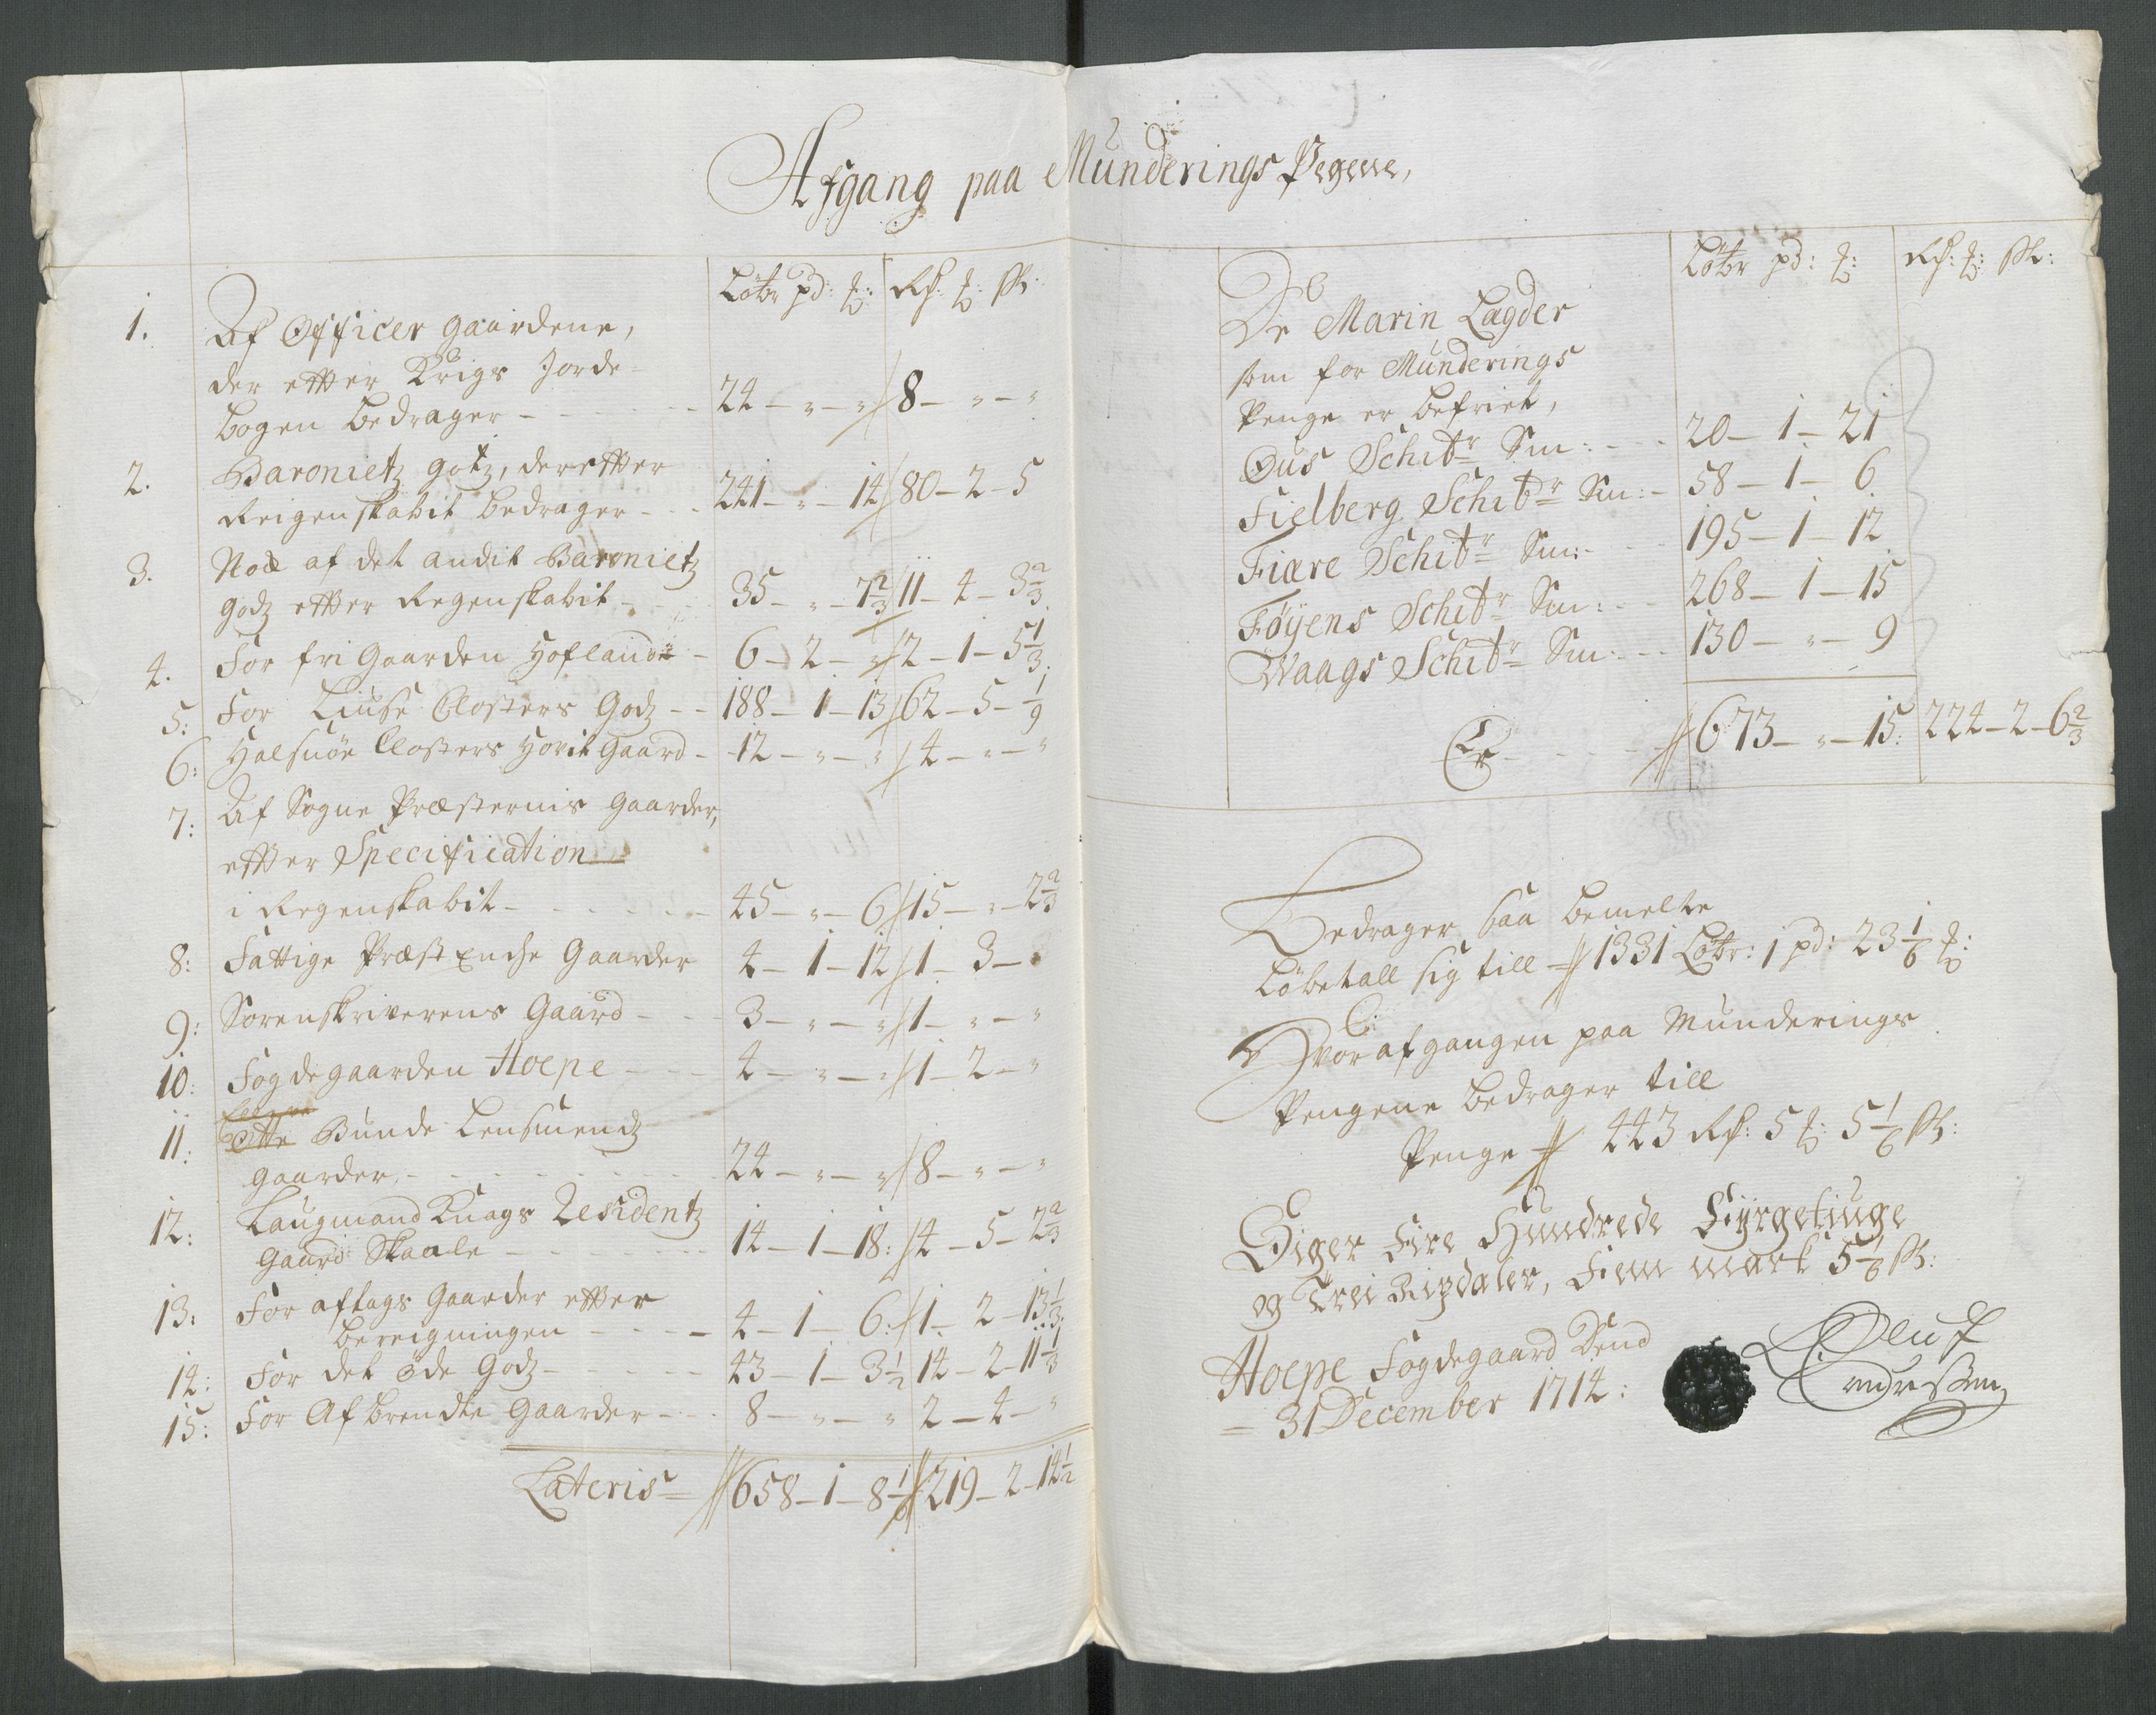 Afgang paa Munderings Pegene,
Løbr pd: ℔: Rd: ℔: ß:
1. Af Officer gaardene,
der efter Krigs Jorde-
bogen bedrager - - - - - 24 - " - " 8 - " - "
2. Baronietz gotz, der efter
Reigenskabit bedrager - - 241 - " - 14 80 - 2 - 5
3. Noch af det andit Baronietz
godz efter Regenskabit - - 35 - " - 7 2/3 11 - 4 - 3 2/3
4. For fri Gaarden Hofland - 6 - 2 - " 2 - 1 - 5 1/3
5: For Liuse Closters Godz - - 188 - 1 - 13 62 - 5 - 1/9
6: Halsnøe Closters Hovit gaard - 12 - " - " 4 - " - "
7: Af Sogne Præsternis gaarder,
efter Specification
i Regenskabit - - - - - 45 - " - 6 15 - " - 2 2/3
8: Fattige Præst Enche Gaarder 4 - 1 - 12 1 - 3 - "
9: Sorenskriverens Gaard - - - 3 - " - " 1 - " - "
10: Fogdegaarden Hoepe - - - 4 - " - " 1 - 2 - "
11: Otte Bunde Lensmendz
gaarder, - - - - - 24 - " - " 8 - " - "
12: Laugmand Knags Residentz
gaard Skaale - - - - - 14 - 1 - 18: 4 - 5 - 2 2/3
13: For aftags Gaarder efter
bereigningen - - - - 4 - 1 - 6: 1 - 2 - 13 1/3
14: For det øde Godz - - - - - 43 - 1 - 3 1/2 14 - 2 - 11 1/3
15: For Afbrendte Gaarder - - - 8 - " - " 2 - 4 - "
Lateris 658 - 1 - 8 1/6 219 - 2 - 14 1/2
Løbr pd: ℔: Rd: ℔: ß:
De Marin Lagder
som for Munderings
Penge er befriet,
Ous Schibr Sm: - - - 20 - 1 - 21
Fielberg Schibr Sm: - 58 - 1 - 6
Fiære Schibr Sm: - - 195 - 1 - 12
Føyens Schibr Sm: - - 268 - 1 - 15
Waags Schibr Sm: - - - 130 - " - 9
Er - - - - 673 - " - 15: 224 - 2 - 6 2/3
Bedrager saa bemelte
Løbetall sig till 1331 Løbr: 1 pd: 23 1/6 ℔:
Hvor afgangen paa Munderings
Pengene bedrager till
Penge 443 Rd: 5 ℔: 5 1/6 ß:
Siger Fire Hundrede Fyrgetiuge
og Trei Rixdaler, Fiem mark 5 1/6 ß:
Hoepe Fogdegaard Dend
31 December 1714:
Oluf